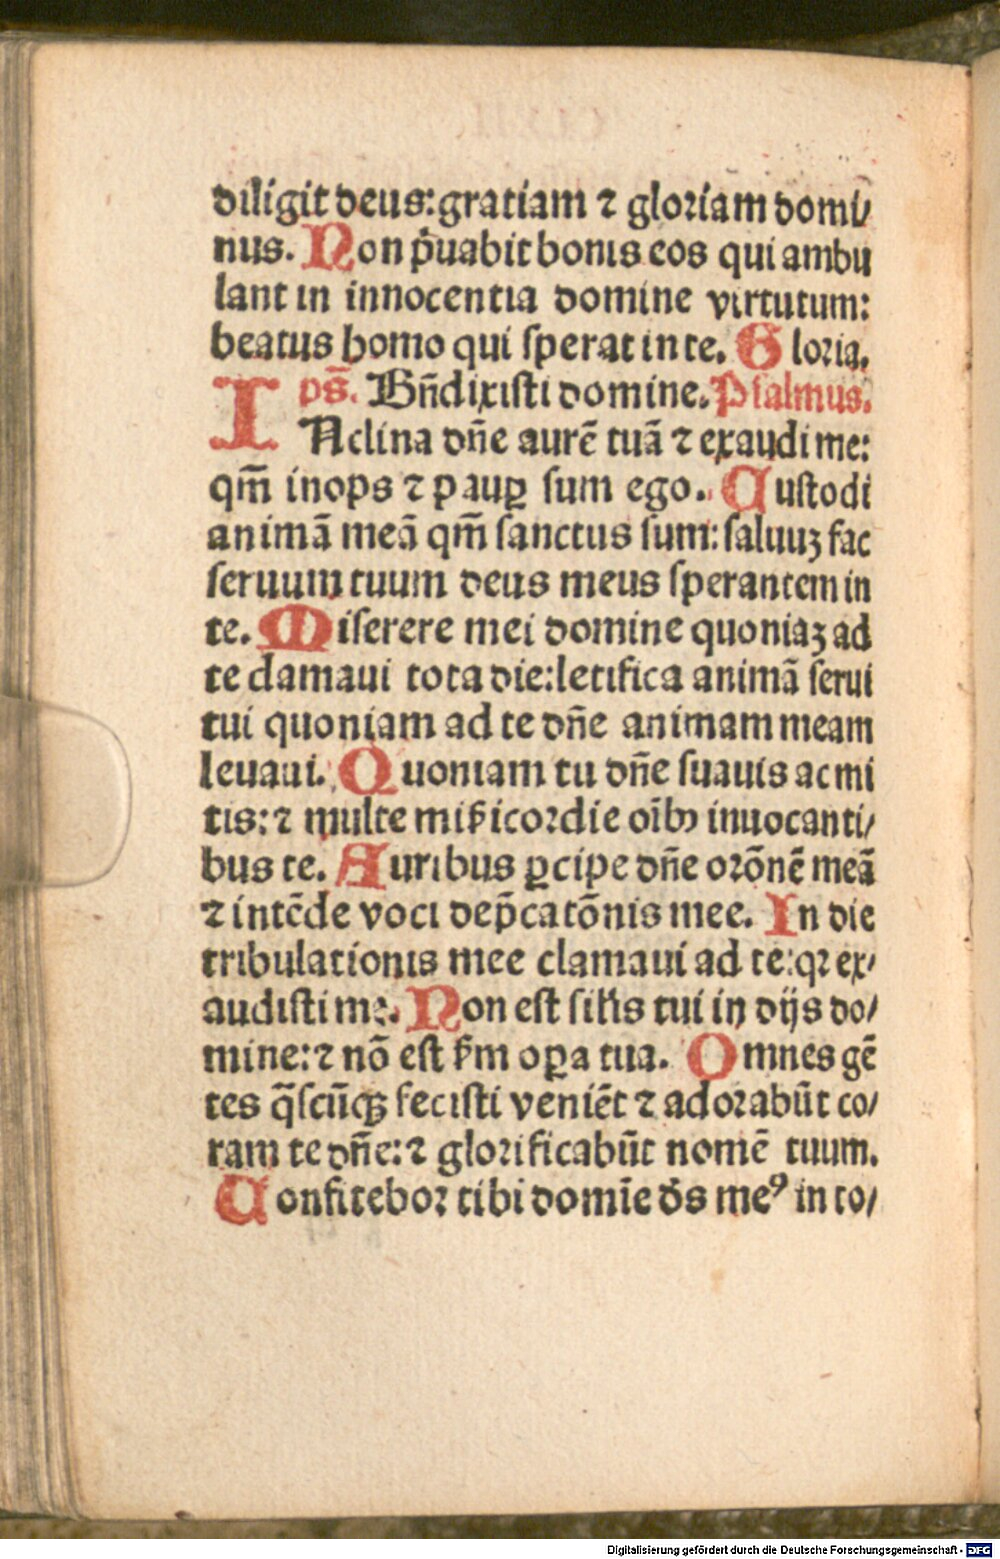 diligit deus: gratiam ⁊ gloriam domi/
nus. Non p̄uabit bonis eos qui ambu
lant in innocentia domine virtutum:
beatus homo qui sperat in te. Gloria.
ps̄. Bn̄dixisti domine. Psalmus.
INclina dn̄e aurē tuā ⁊ exaudi me:
qm̄ inops ⁊ pauꝑ sum ego. Custodi
animā meā qm̄ sanctus sum: saluuꝫ fac
seruum tuum deus meus sperantem in
te. Miserere mei domine quoniaꝫ ad
te clamaui tota die: letifica animā serui
tui quoniam ad te dn̄e animam meam
leuaui. Quoniam tu dn̄e suauis ac mi
tis: ⁊ multe mis̄icordie oībꝰ inuocanti/
bus te. Auribus ꝑcipe dn̄e orōnē meā
⁊ intēde voci dep̄catōnis mee. In die
tribulationis mee clamaui ad te: qꝛ ex/
audisti me. Non est sil̄is tui in dijs do/
mine: ⁊ nō est s̄m oꝑa tua. Omnes gē
tes q̄scūqꝫ fecisti veniēt ⁊ adorabūt co/
ram te dn̄e: ⁊ glorificabūt nomē tuum.
Confitebor tibi domīe ds̄ meꝰ in to/
Digitalisierung gefördert durch die Deutsche Forschungsgemeinschaft - DFG